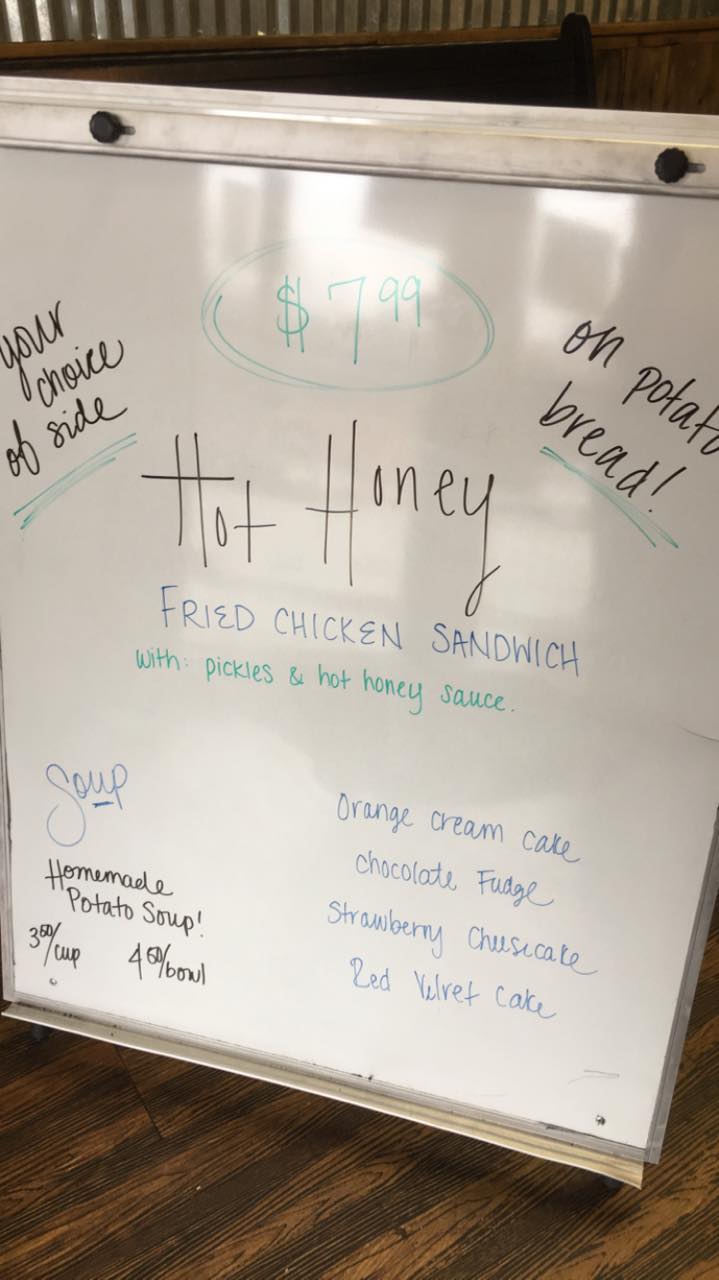 $7.99
your
choice
of side
on potato
bread!
Hot Honey
FRIED CHICKEN SANDWICH
with: pickles & hot honey sauce.
Soup
Homemade
Potato Soup!
3.50/cup 4.50/bowl
Orange cream cake
chocolate Fudge
Strawberry Cheesecake
Red Velvet Cake